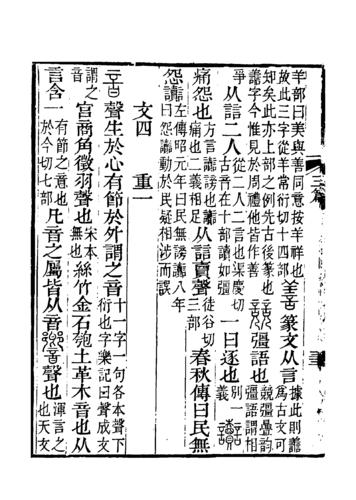 羊部曰美與善同意按羊祥也故此三字從羊常衍切十四部善篆文从言據此則譱爲古文可
知矣此亦上部之例先古後篆也譱字今惟見於周禮他皆作善競彊語也競彊曡韵彊語謂相
爭从誩二人從二人二言也渠慶切古音在十部讀如彊一曰逐也別一義讟
痛怨也方言讟謗也讟痛也二義相足从誩𧶠聲徒谷切三部春秋傳曰民無
怨讟左傳昭元年曰民無謗讟八年曰怨讟動於民疑相涉而誤
文四 重一
音聲生於心有節於外謂之音十一字一句各本聲下衍也字樂記曰聲成文
謂之音宮商角徵羽聲也宋本無也絲竹金石匏土革木音也从
言含一有節之意也於今切七部凡音之屬皆从音響聲也渾言之也天文
三篇